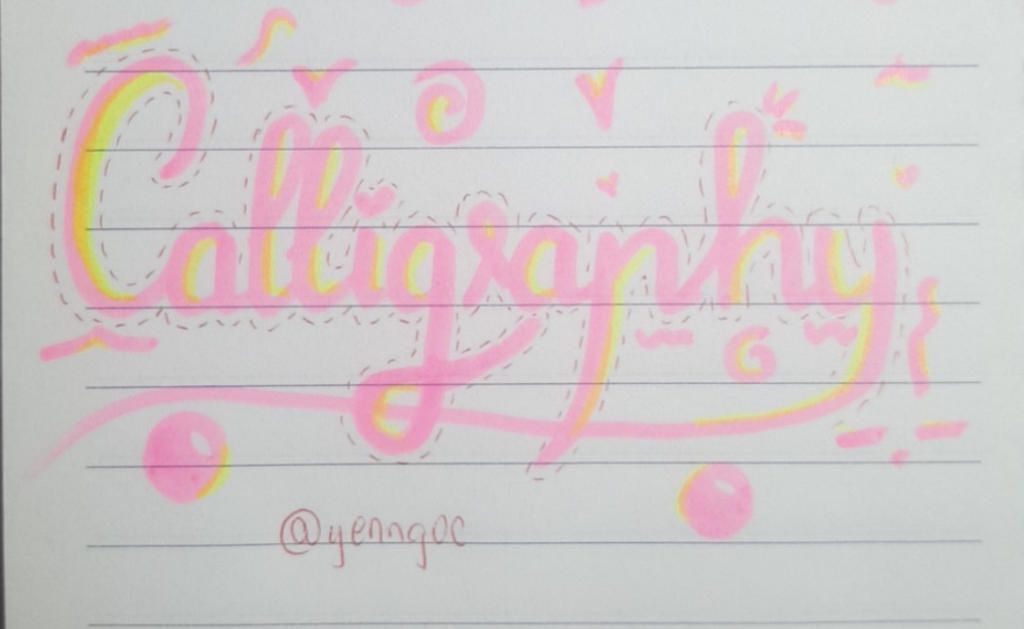 Calligraphy
@yenngoc